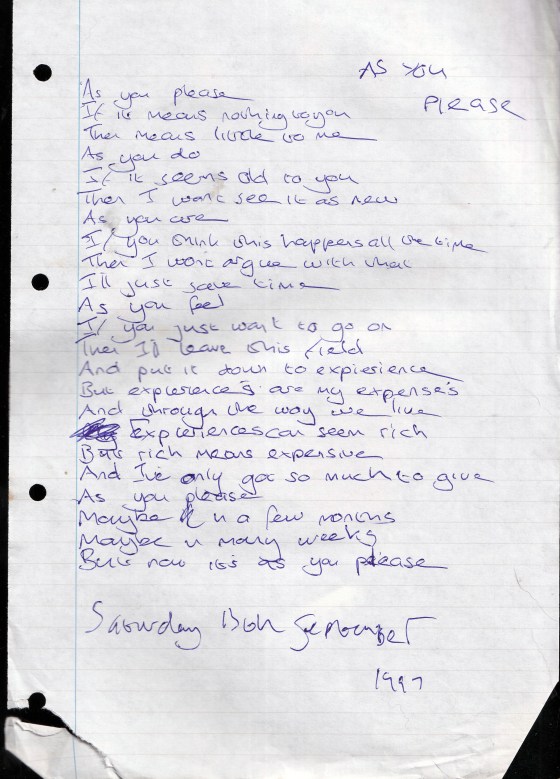 AS YOU
PLEASE
As you please
If it means nothing to you
Then means little to me
As you do
If it seems old to you
Then I wont see it as new
As you are
If you think this happens all the time
Then I wont argue with that
I'll just save time
As you feel
If you just want to go on
Then I'll leave this field
And put it down to expierience
But expierience's are my expense's
And through the way we live
Expieriences can seem rich
But rich means expensive
And I've only got so much to give
As you please
Maybe in a few months
Maybe in many weeks
But now it's as you please
Saturday 13th September
1997